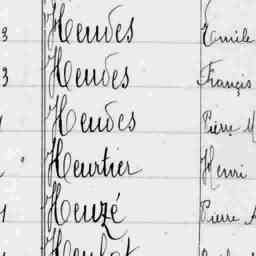 3 Heudes Emile
3 Heudes Françis
Heudes Pierre M
Heurtier Henri
Heuzé Pierre A